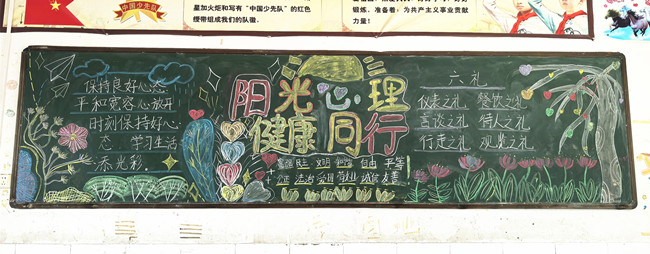 星加火炬和写有“中国少先队”的红色
绶带组成我们的队徽。
中国少先队
锻炼,准备着:为共产主义事业贡献
力量!
保持良好心态
平和宽容心放开
时刻保持好心
态 学习生活
添光彩.
阳光心理
健康同行
富强 民主 文明 和谐 自由 平等
公正 法治 爱国 敬业 诚信 友善
六礼
仪表之礼 餐饮之礼
言谈之礼 待人之礼
行走之礼 观览之礼